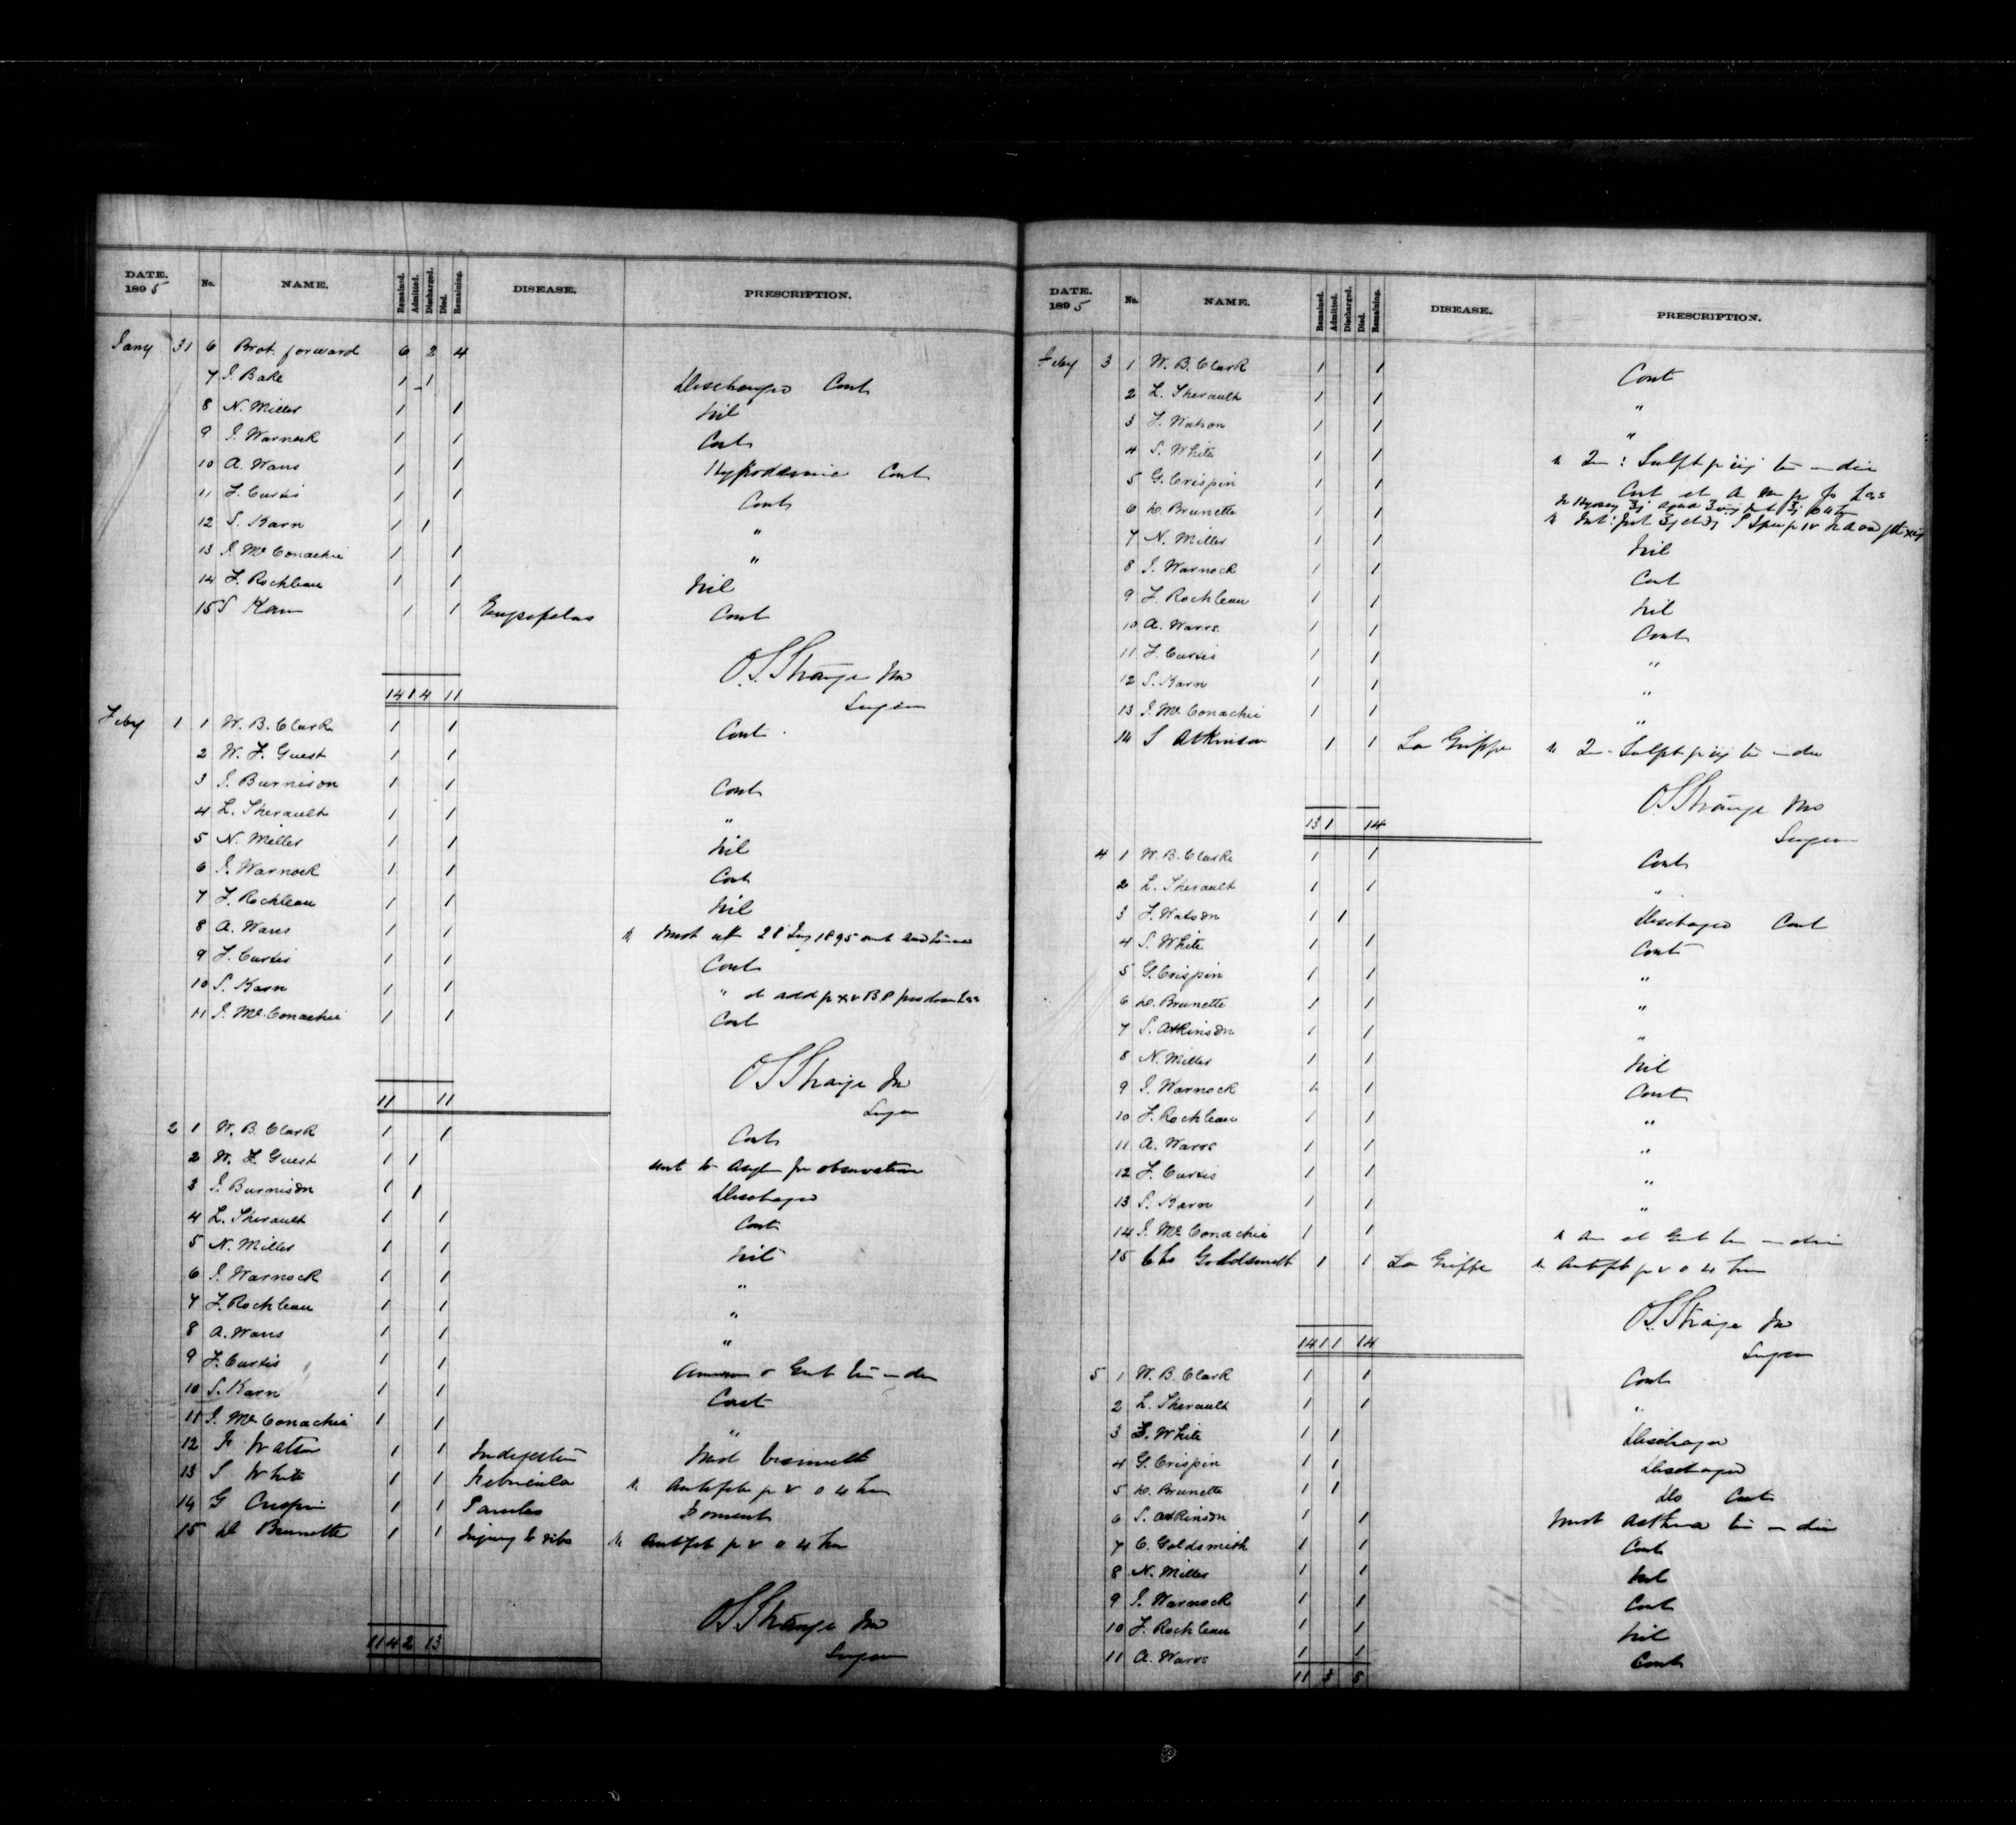 DATE. 1895 No. NAME. Remained. Admitted. Discharged. Died. Remaining. DISEASE. PRESCRIPTION.
Jany 31 6 Brot forward 6 2 4
7 J. Bake 1 1 Discharged Cont
8 N. Miller 1 1 Nil
9 J. Warnock 1 1 Cont
10 A. Waus 1 1 Hypodermic Cont
11 F. Curtis 1 1 Cont
12 S. Karn 1 1 "
13 J. McConachie 1 1 "
14 F. Rochleau 1 1 Nil
15 S Karn 1 1 Erysipelas Cont
O.S. Strange MD
14 1 4 11 Surgeon
Feby 1 1 W. B. Clark 1 1 Cont
2 W. F. Guest 1 1
3 J. Burnison 1 1 Cont
4 L. Sherault 1 1 "
5 N. Miller 1 1 Nil
6 J. Warnock 1 1 Cont
7 F. Rochleau 1 1 Nil
8 A. Waus 1 1 28 1895
9 F. Curtis 1 1 Cont
10 S. Karn 1 1 " et add
11 J. McConachie 1 1 Cont
O S Strange MD
11 11 Surgeon
2 1 W. B. Clark 1 1 Cont
2 W. F. Guest 1 1 sent to Asylm for observation
3 J. Burnison 1 1 Discharged
4 L. Sherault 1 1 Cont
5 N. Miller 1 1 Nil
6 J. Warnock 1 1 "
7 F. Rochleau 1 1 "
8 A. Waus 1 1 "
9 F. Curtis 1 1
10 S. Karn 1 1 Cont
11 J. McConachie 1 1 "
12 F Watson 1 1 Indigestion Mist bismuth
13 S White 1 1 Febricula Antifeb 4
14 G Crispin 1 1 Foment
15 D Brunette 1 1 Injury to ribs Antifeb 4
O S Strange MD
11 4 2 13 Surgeon
DATE. 1895 No. NAME. Remained. Admitted. Discharged. Died. Remaining. DISEASE. PRESCRIPTION.
Feby 3 1 W. B. Clark 1 1 Cont
2 L. Sherault 1 1 "
3 F. Watson 1 1 "
4 S. White 1 1 Sulph
5 G. Crispin 1 1 Cont
6 D. Brunette 1 1
7 N. Miller 1 1 Nil
8 J. Warnock 1 1 Cont
9 F. Rochleau 1 1 Nil
10 A. Warrs. 1 1 Cont
11 F. Curtis 1 1 "
12 S. Karn 1 1 "
13 J. McConachie 1 1 "
14 S Atkinson 1 1 La Grippe Sulph
O S Strange MD
13 1 14 Surgeon
4 1 W. B. Clark 1 1 Cont
2 L. Sherault 1 1 "
3 F. Watson 1 1 Discharged Cont
4 S. White 1 1 Cont
5 G. Crispin 1 1 "
6 D. Brunette 1 1 "
7 S. Atkinson 1 1 "
8 N. Miller 1 1 Nil
9 J. Warnock 1 1 Cont
10 F. Rochleau 1 1 "
11 A. Warrs 1 1 "
12 F. Curtis 1 1 "
13 S. Karn 1 1 "
14 J. McConachie 1 1
15 Chs Goldsmith 1 1 La Grippe Antifeb 4
O S Strange MD
14 1 1 14 Surgeon
5 1 W. B. Clark 1 1 Cont
2 L. Sherault 1 1 "
3 S. White 1 1 Discharged
4 G. Crispin 1 1 Discharged
5 D. Brunette 1 1 Do Cont
6 S. Atkinson 1 1 Mist Asthma
7 C. Goldsmith 1 1 Cont
8 N. Miller 1 1 Nil
9 J. Warnock 1 1 Cont
10 F. Rochleau 1 1 Nil
11 A. Warrs 1 1 Cont
11 3 8